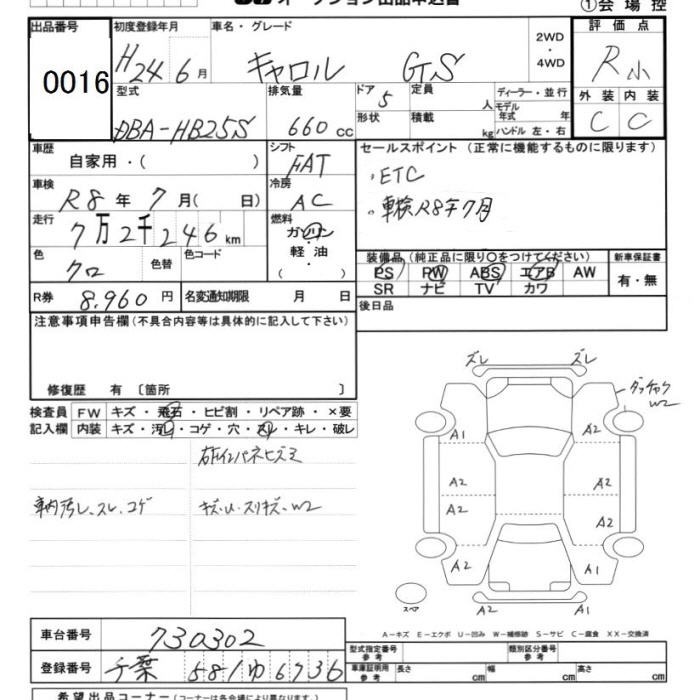 オークション出品申込書
①会場控
出品番号 初度登録年月 車名・グレード 2WD・4WD 評価点
0016 H24年6月 キャロル GS R小
型式 排気量 ドア 定員 ディーラー・並行 外装 内装
DBA-HB25S 660cc 5 人 モデル年式 年 C C
形状 積載 kg ハンドル 左・右
車歴 自家用・( ) シフト FAT セールスポイント (正常に機能するものに限ります)
車検 R8年7月( 日) 冷房 AC ・ETC
走行 7万2千246km 燃料 ガソリン・軽油・( ) ・車検R8年7月
色 クロ 色替 色コード 装備品 (純正品に限り○をつけてください) 新車保証書
PS PW ABS エアB AW 有・無
SR ナビ TV カワ
R券 8.960円 名変通知期限 月 日 後日品
注意事項申告欄 (不具合内容等は具体的に記入して下さい)
修復歴 有 〔箇所 〕
検査員 FW キズ・飛石・ヒビ割・リペア跡・×要
記入欄 内装 キズ・汚れ・コゲ・穴・スレ・キレ・破レ
車内汚レ、スレ、コゲ キズ・U・スリキズ・W2
ズレ ズレ
W2
A1 A2
A2 A2
A2 A2
A2 A1
A2 A1
スペア
A-キズ E-エクボ U-凹み W-補修跡 S-サビ C-腐食 XX-交換済
車台番号 730302
登録番号 千葉 581 ゆ 6736
型式指定番号 参考 類別区分番号 参考
車庫証明用 参考 長さ cm 幅 cm 高さ cm
希望出品コーナー (コーナーは各会場により異なります。)